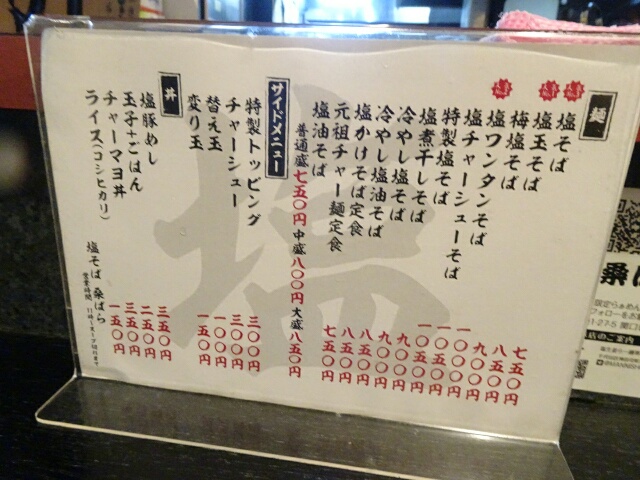 麺
塩そば 七五〇円
塩玉そば 八五〇円
梅塩そば 九〇〇円
塩ワンタンそば
塩チャーシューそば
特製塩そば 一〇五〇円
塩煮干しそば 九〇〇円
冷やし塩そば 九〇〇円
冷やし塩油そば 八五〇円
塩かけそば定食 八五〇円
元祖チャー麺定食 七五〇円
塩油そば
普通盛七五〇円 中盛八〇〇円 大盛八五〇円
サイドメニュー
特製トッピング 三〇〇円
チャーシュー 三〇〇円
替え玉 一〇〇円
変り玉 一五〇円
丼
塩豚めし 三五〇円
玉子+ごはん 二五〇円
チャーマヨ丼 三五〇円
ライス(コシヒカリ) 一五〇円
塩そば 桑ばら
塩
桑ば
限定らぁめん
フォローをお
1-27-5 関口
店のご案内